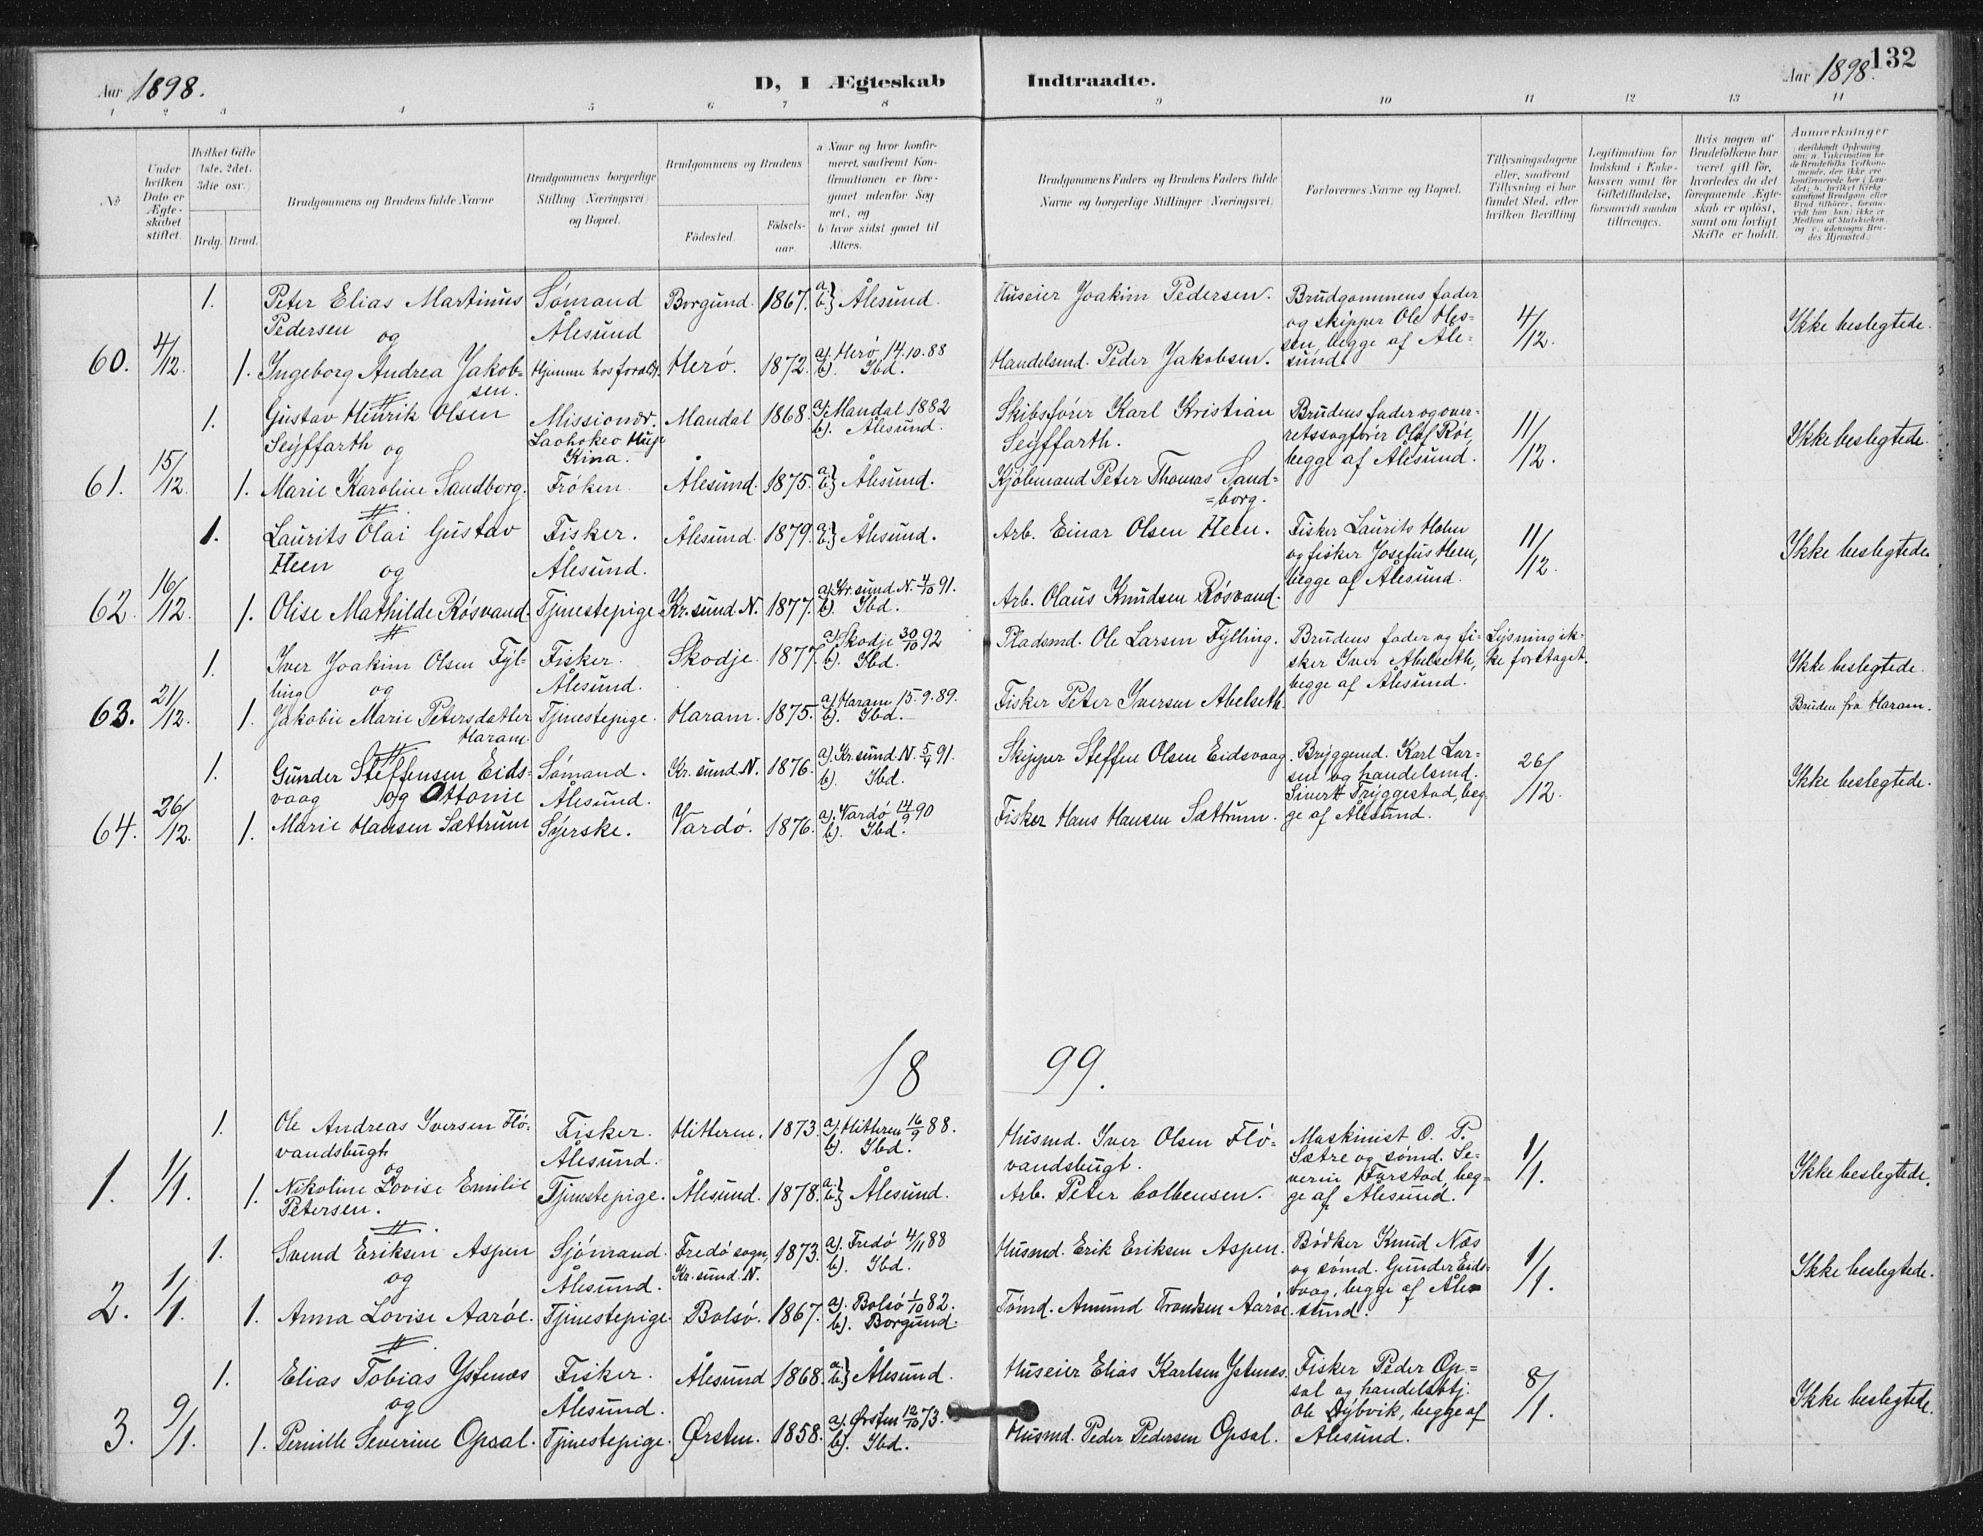 132
Aar 1898.
D, I Ægteskab
Indtraadte.
Aar 1898.
1 2 3 4 5 6 7 8 9 10 11 12 13 14
No
Under hvilken Dato er Ægteskabet stiftet.
Hvilket Gifte 1ste, 2det, 3die osv.
Brdg. Brud.
Brudgommens og Brudens fulde Navne
Brudgommens borgerlige Stilling (Næringsvei) og Bopæl.
Brudgommens og Brudens
Fødested.
Fødselsaar.
a Naar og hvor konfirmeret, saafremt Konfirmationen er foregaaet udenfor Sognet, og
b) hvor sidst gaaet til Alters.
Brudgommens Faders og Brudens Faders fulde Navne og borgerlige Stillinger (Næringsvei).
Forlovernes Navne og Bopæl.
Tillysningsdagene eller, saafremt Tillysning ei har fundet Sted, efter hvilken Bevilling.
Legitimation for Indskud i Enkekassen samt for Giftetilladelse, forsaavidt saadan tiltrænges.
Hvis nogen af Brudefolkene har været gift før, hvorledes da det foregaaende Ægteskab er opløst, samt om lovligt Skifte er holdt.
Anmerkninger
60. 4/12. 1. Peter Elias Martinus Sømand Borgund. 1867. a) b) Ålesund. Huseier Joakim Pedersen. Brudgommens fader 4/12. Ikke beslegtede.
Pedersen og Ålesund og skipper Ole Han-
1. Ingeborg Andrea Jakob- Hjemme hos foræld. Herø. 1872. a). Herø 14.10.88 Handelsmd. Peder Jakobsen. sen, begge af Åle-
sen. b). Ibd. sund.
61. 15/12. 1. Gustav Henrik Olsen Missionær. Mandal 1868. a). Mandal 1882 Skibsfører Karl Kristian Brudens fader og over- 11/12. Ikke beslegtede.
Seyffarth og Laohokeo Hupe b). Ålesund. Seyffarth. retssagfører Olaf Røe,
Kina. begge af Ålesund.
1. Marie Karoline Sandborg. Frøken. Ålesund. 1875. a) b) Ålesund. Kjøbmand Peter Thomas Sand-
borg.
62. 16/12. 1. Laurits Olai Gustav Fisker. Ålesund. 1879. a) b) Ålesund. Arb. Einar Olsen Heen. Fisker Laurits Holm 11/12. Ikke beslegtede
Heen og Ålesund. og fisker Josefus Heen,
begge af Ålesund.
1. Olise Mathilde Røsvand. Tjenestepige. Kr.sund N. 1877. a). Kr.sund N. 4/10 91. Arb. Olaus Knudsen Røsvand.
b). Ibd.
63. 21/12. 1. Iver Joakim Olsen Fyl- Fisker. Skodje. 1877. a). Skodje 30/10 92 Pladsmd. Ole Larsen Fylling. Brudens fader og fi- Lysning ik- Ikke beslegtede.
ling og Ålesund. b). Ibd. sker Iver Abelseth, ke foretaget.
begge af Ålesund.
1. Jakobie Marie Petersdatter Tjenestepige. Haram. 1875. a). Haram 15.9.89. Fisker Peter Iversen Abelseth. Bruden fra Haram.
Haram. b). Ibd.
64. 26/12. 1. Gunder Steffensen Eids- Sømand. Kr.sund N. 1876. a). Kr.sund N. 5/4 91. Skipper Steffen Olsen Eidsvaag Bryggemd. Karl Lar- 26/12. Ikke beslegtede.
vaag og Ottonie Ålesund. b). Ibd. sen og handelsmd.
Sivert Tryggestad, beg-
1. Marie Hansen Sættrum Syerske. Vardø. 1876. a). Vardø 14/9 90 Fisker Hans Hansen Sættrum. ge af Ålesund.
b). Ibd.
1899.
1. 1/1. 1. Ole Andreas Iversen Flø- Fisker. Hitteren. 1873. a). Hitteren 16/9 88. Husmd. Iver Olsen Flø- Maskinist O. P. 1/1. Ikke beslegtede.
vandsbugt Ålesund. b). Ibd. vandsbugt. Sætre og sømd. Se-
og verin Farstad, beg-
1. Nikoline Lovise Emilie Tjenestepige. Ålesund. 1878. a) b) Ålesund. Arb. Peter Colbensen. ge af Ålesund.
Petersen.
2. 1/1. 1. Svend Eriksen Aspen Sjømand. Fredø sogn, 1873. a). Fredø 4/11 88 Husmd. Erik Eriksen Aspen. Bødker Knud Næs 1/1. Ikke beslegtede.
og Ålesund. Kr.sund. N. b). Ibd. og sømd. Gunder Eids-
vaag, begge af Åle-
1. Anna Lovise Aarøe. Tjenestepige. Bolsø. 1867. a). Bolsø 1/10 82. Tømd. Amund Trondsen Aarøe. sund.
b). Borgund.
3. 9/1. 1. Elias Tobias Ystenæs Fisker. Ålesund 1868. a) b) Ålesund. Huseier Elias Karlsen Ystenæs. Fisker Peder Op- 8/1. Ikke beslegtede.
og Ålesund. sal og handelsbtj.
Ole Dybvik, begge af
1. Pernille Severine Opsal. Tjenestepige. Ørsten. 1858. a). Ørsten 12/10 73. Husmd. Peder Pedersen Opsal. Ålesund.
b). Ibd.